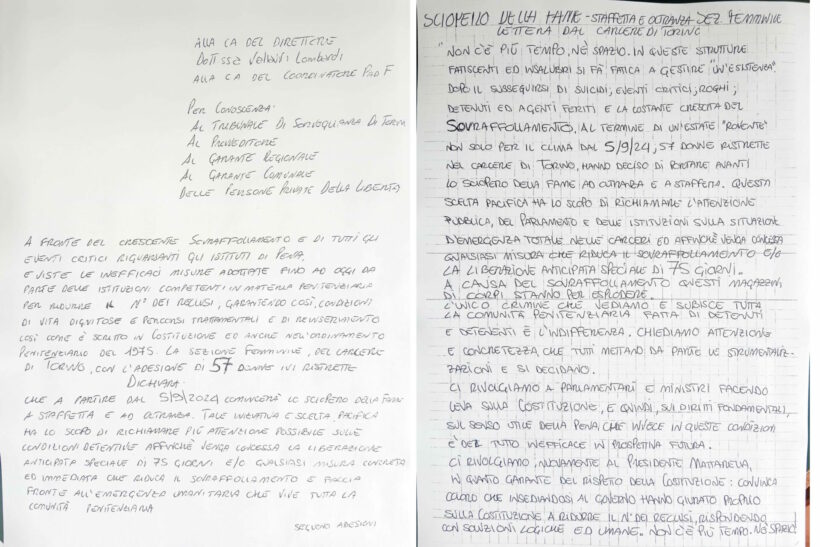 ALLA CA DEL DIRETTORE
DOTT.SSA Lombardi
ALLA CA DEL COORDINATORE PAD F
PER CONOSCENZA:
AL TRIBUNALE DI SORVEGLIANZA DI TORINO
AL PROVVEDITORE
AL GARANTE REGIONALE
AL GARANTE COMUNALE
DELLE PERSONE PRIVATE DELLA LIBERTÀ
A FRONTE DEL CRESCENTE SOVRAFFOLLAMENTO E DI TUTTI GLI
EVENTI CRITICI RIGUARDANTI GLI ISTITUTI DI PENA,
E VISTE LE INEFFICACI MISURE ADOTTATE FINO AD OGGI DA
PARTE DELLE ISTITUZIONI COMPETENTI IN MATERIA PENITENZIARIA
PER RIDURRE IL N° DEI RECLUSI, GARANTENDO COSÌ, CONDIZIONI
DI VITA DIGNITOSE E PERCORSI TRATTAMENTALI E DI REINSERIMENTO
COSÌ COME È SCRITTO IN COSTITUZIONE ED ANCHE NELL'ORDINAMENTO
PENITENZIARIO DEL 1975. LA SEZIONE FEMMINILE, DEL CARCERE
DI TORINO, CON L'ADESIONE DI 57 DONNE IVI RISTRETTE
DICHIARA:
CHE A PARTIRE DAL 5/9/2024 COMINCERÀ LO SCIOPERO DELLA FAME
A STAFFETTA E AD OLTRANZA. TALE INIZIATIVA E SCELTA PACIFICA
HA LO SCOPO DI RICHIAMARE PIÙ ATTENZIONE POSSIBILE SULLE
CONDIZIONI DETENTIVE AFFINCHÈ VENGA CONCESSA LA LIBERAZIONE
ANTICIPATA SPECIALE DI 75 GIORNI E/O QUALSIASI MISURA CONCRETA
ED IMMEDIATA CHE RIDUCA IL SOVRAFFOLLAMENTO E FACCIA
FRONTE ALL'EMERGENZA UMANITARIA CHE VIVE TUTTA LA
COMUNITÀ PENITENZIARIA
SEGUONO ADESIONI
SCIOPERO DELLA FAME - STAFFETTA E OLTRANZA SEZ. FEMMINILE
LETTERA DAL CARCERE DI TORINO
"NON C'È PIÙ TEMPO, NÈ SPAZIO. IN QUESTE STRUTTURE
FATISCENTI ED INSALUBRI SI FÀ FATICA A GESTIRE "UN'ESISTENZA".
DOPO IL SUSSEGUIRSI DI SUICIDI, EVENTI CRITICI, ROGHI;
DETENUTI ED AGENTI FERITI E LA COSTANTE CRESCITA DEL
SOVRAFFOLLAMENTO, AL TERMINE DI UN'ESTATE "ROVENTE"
NON SOLO PER IL CLIMA DAL 5/9/24, 57 DONNE RISTRETTE
NEL CARCERE DI TORINO, HANNO DECISO DI PORTARE AVANTI
LO SCIOPERO DELLA FAME AD OLTRANZA E A STAFFETTA. QUESTA
SCELTA PACIFICA HA LO SCOPO DI RICHIAMARE L'ATTENZIONE
PUBBLICA, DEL PARLAMENTO E DELLE ISTITUZIONI SULLA SITUAZIONE
D'EMERGENZA TOTALE NELLE CARCERI ED AFFINCHÈ VENGA CONCESSA
QUALSIASI MISURA CHE RIDUCA IL SOVRAFFOLLAMENTO E/O
LA LIBERAZIONE ANTICIPATA SPECIALE DI 75 GIORNI.
A CAUSA DEL SOVRAFFOLLAMENTO QUESTI MAGAZZINI
DI CORPI STANNO PER ESPLODERE.
L'UNICO CRIMINE CHE VEDIAMO E SUBISCE TUTTA
LA COMUNITÀ PENITENZIARIA FATTA DI DETENUTI
E DETENENTI È L'INDIFFERENZA. CHIEDIAMO ATTENZIONE
E CONCRETEZZA, CHE TUTTI METTANO DA PARTE LE STRUMENTALIZ-
ZAZIONI E SI DECIDANO.
CI RIVOLGIAMO A PARLAMENTARI E MINISTRI FACENDO
LEVA SULLA COSTITUZIONE, E QUINDI, SUI DIRITTI FONDAMENTALI,
SUL SENSO UTILE DELLA PENA CHE INVECE IN QUESTE CONDIZIONI
È DEL TUTTO INEFFICACE IN PROSPETTIVA FUTURA.
CI RIVOLGIAMO, NUOVAMENTE AL PRESIDENTE MATTARELLA,
IN QUANTO GARANTE DEL RISPETTO DELLA COSTITUZIONE: CONVINCA
COLORO CHE INSEDIANDOSI AL GOVERNO HANNO GIURATO PROPRIO
SULLA COSTITUZIONE A RIDURRE IL N° DEI RECLUSI, RISPONDENDO
CON SOLUZIONI LOGICHE ED UMANE. NON C'È PIÙ TEMPO. NÈ SPAZIO!